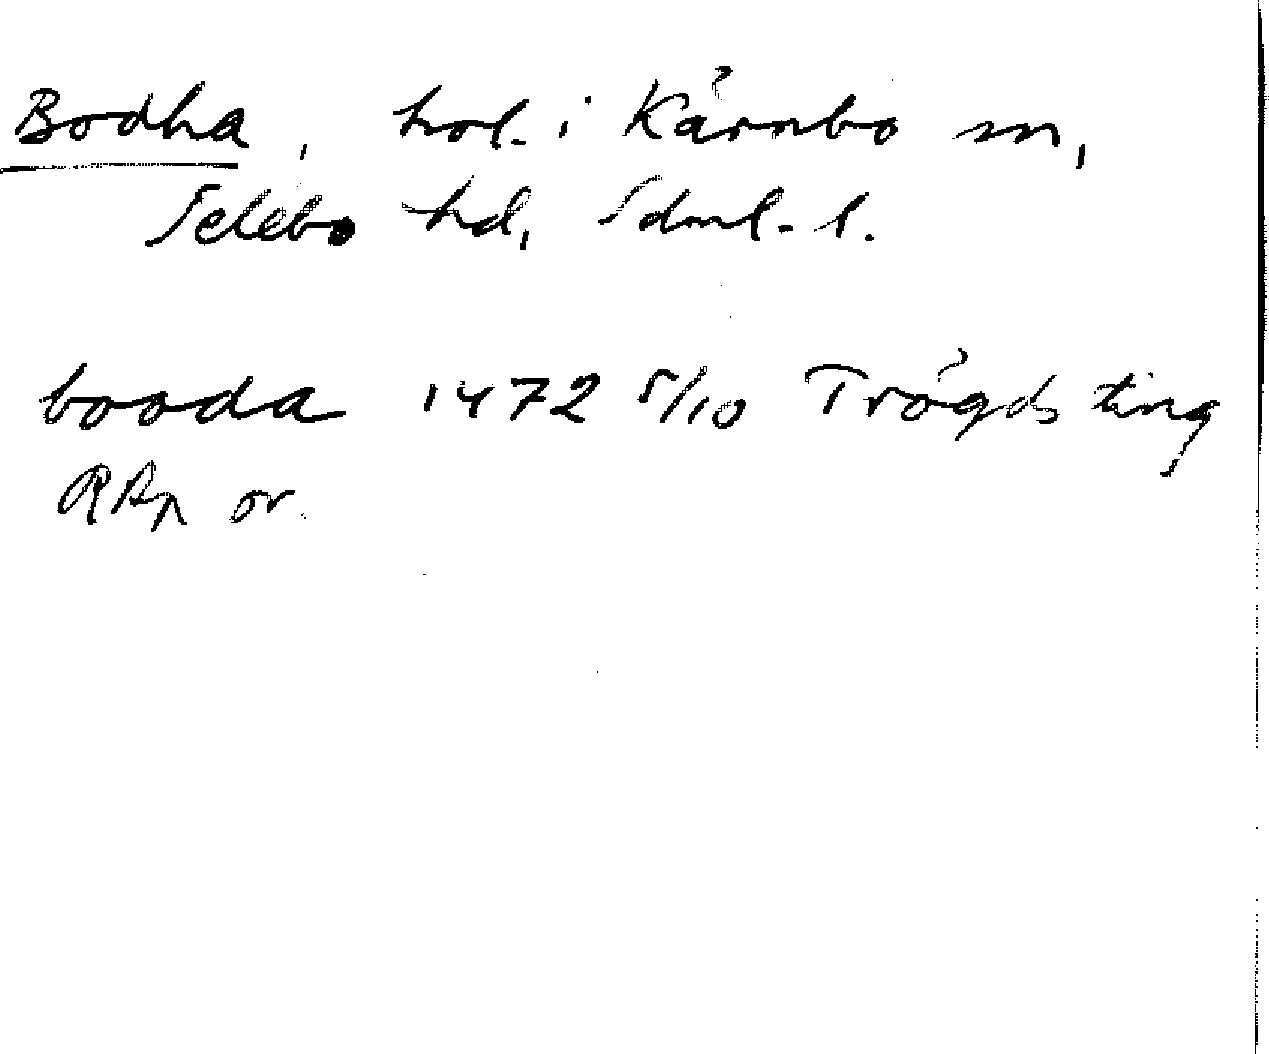 Bodha, trol. i Kärnbo sn,
Selebo hd, Sdml. l.
booda 1472 5/10 Trögds ting
RAp or.